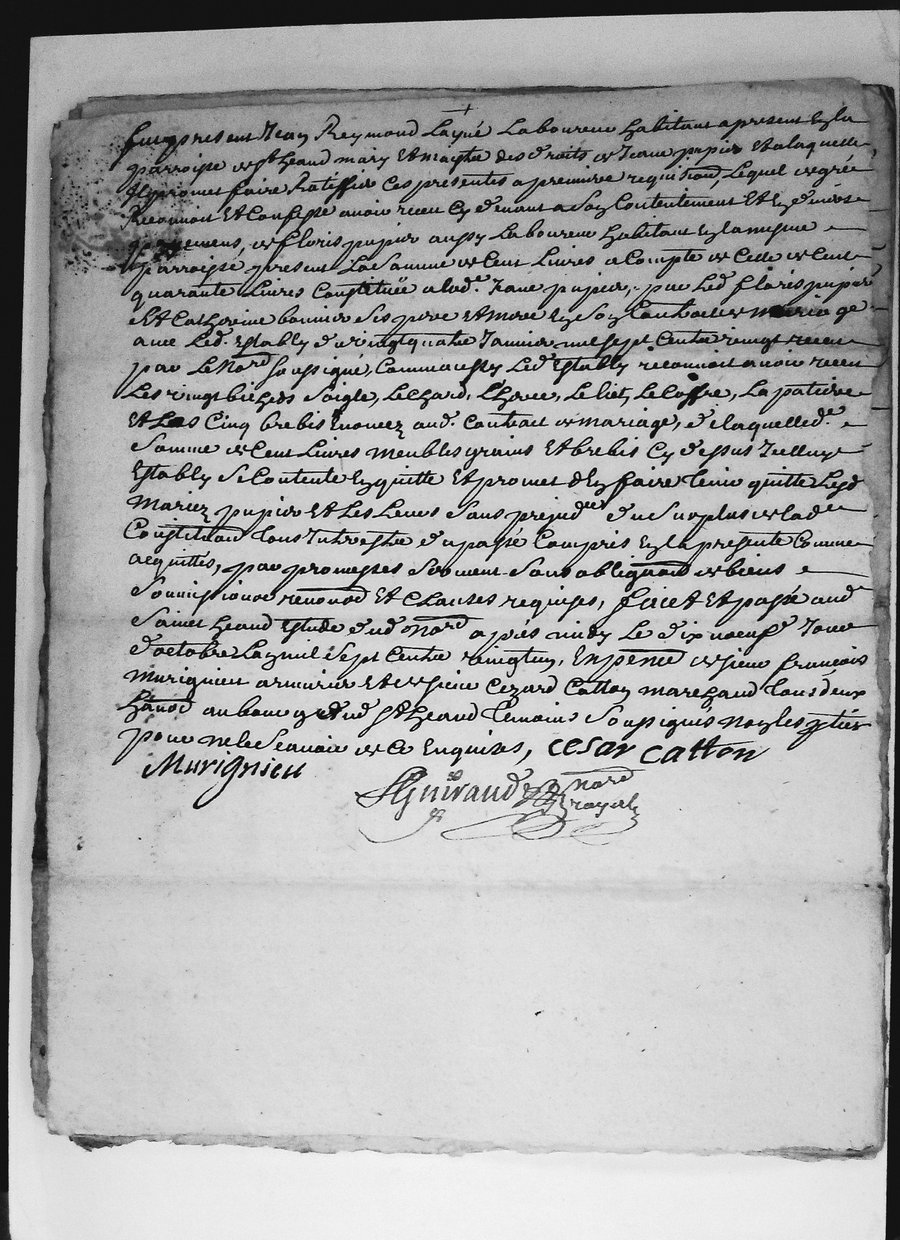 fut present Jean Reymond Layné Laboureur habitant apresent En la
parroisse de St heand mary Et maistre des droits de Jeane pupier Et a laquelle
Il promet faire Ratiffier Ces presentes a premiere requision, Lequel de gré
Reconnoit Et Confesse avoir receu Cy devant a Son Contentement Et En divers
payemens, de floris pupier aussy Laboureur habitant En la mesme
parroisse present La Somme de Cent Livres a Compte de Celle de Cent
quarante Livres Constituée a lad.e Jeane pupier, par Led floris pupier
Et Catherine bonnier Ses pere Et Mere En Son Contract de mariage
avec Led. Establly du vingt quatre Janvier mil Sept Cent vingt receu
par Le Nore Soussigné, Comme aussy Led Establly reconnoit avoir receu
Les vingt bichets Soigle, Le Chard, L'harce, Le liet, Le Coffre, La patiere
Et Les Cinq brebis Enoncez aud. Contract de mariage, de laquelle de
Somme de Cent Livres meubles grains Et brebis Cy dessus Icelluy
Establly Se Contente En quitte Et promet d'En faire tenir quitte Lesd
Mariez pupier Et Les Leurs Sans prejude du Surplus de lade
Constitution tous Interestz du passé Compris En la presente Comme
acquittés, par promesses Serment Sous obligaon de biens
Soumissions renonon Et Clauses requises, faict Et passé aud
Sainct heand Estude dud Nore apres midy Le dix noeuf Jour
d'octobre L'an mil Sept Cent vingt un, En pence de Sieur francois
Murignieu armurier Et de Sieur Cezard Catton marchand tous deux
hanon au bourg dud St heand temoins Soussignés non les parties
pour ne le Scavoir de Ce Enquises, Cesar Catton
Murignieu
Guiraud Nore
royal